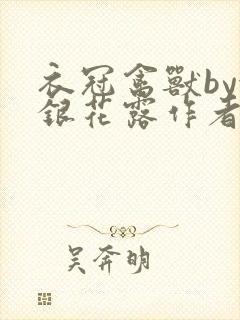 衣冠禽獸by
銀花露作者
吴奔明